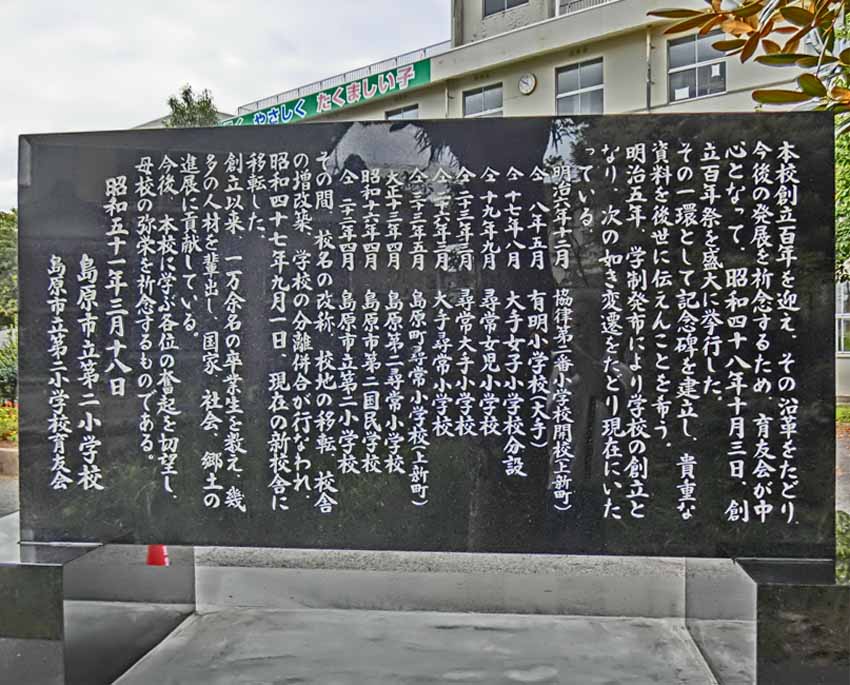 く やさしく たくましい子
本校創立百年を迎え、その沿革をたどり、
今後の発展を祈念するため、育友会が中
心となって、昭和四十八年十月三日、創
立百年祭を盛大に挙行した。
その一環として記念碑を建立し、貴重な
資料を後世に伝えんことを希う。
明治五年、学制発布により学校の創立と
なり、次の如き変遷をたどり現在にいた
っている。
明治六年十二月 協律第二番小学校開校(上新町)
仝 八年五月 有明小学校(大手)
仝 十七年八月 大手女子小学校分設
仝 十九年九月 尋常女児小学校
仝 二十三年三月 尋常大手小学校
仝 二十六年三月 大手尋常小学校
仝 三十三年五月 島原町尋常小学校(上新町)
大正十三年四月 島原第二尋常小学校
昭和十六年四月 島原市第二国民学校
仝 二十二年四月 島原市立第二小学校
その間、校名の改称、校地の移転、校舎
の増改築、学校の分離併合が行なわれ、
昭和四十七年九月一日、現在の新校舎に
移転した。
創立以来、一万余名の卒業生を数え、幾
多の人材を輩出し、国家、社会、郷土の
進展に貢献している。
今後、本校に学ぶ各位の奮起を切望し、
母校の弥栄を祈念するものである。
昭和五十一年三月十八日
島原市立第二小学校
島原市立第二小学校育友会